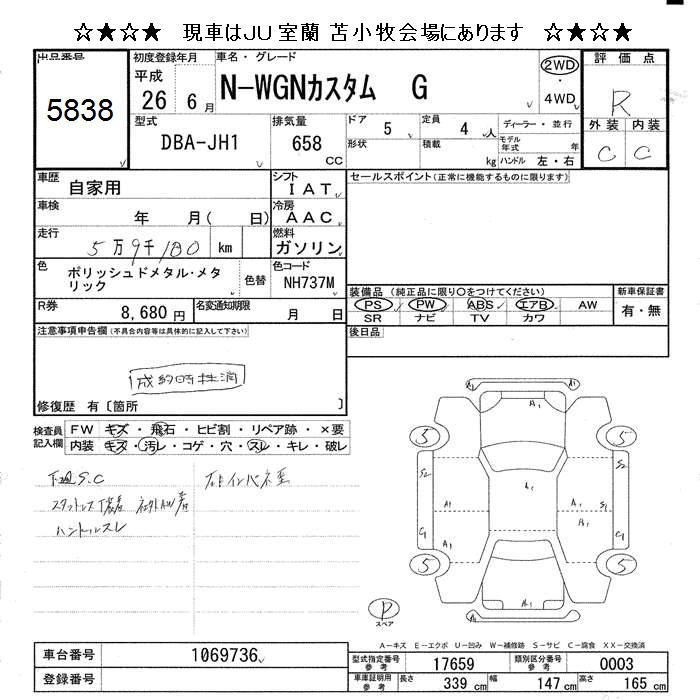 ☆★☆★　現車はＪＵ室蘭 苫小牧会場にあります　☆★☆★
出品番号
5838
初度登録年月
平成
26 6 月
車名・グレード
N-WGNカスタム G
2WD
4WD
評価点
R
外装 内装
C C
型式
DBA-JH1
排気量
658
CC
ドア
5
定員
4 人
ディーラー・並行
形状
積載
kg
モデル年式 年
ハンドル 左・右
車歴
自家用
シフト
I A T
セールスポイント(正常に機能するものに限ります)
車検
年 月( 日)
冷房
A A C
走行
5万9千180 km
燃料
ガソリン
色
ポリッシュドメタル・メタリック
色替
色コード
NH737M
装備品 (純正品に限り○をつけてください)
PS PW ABS エアB AW
SR ナビ TV カワ
新車保証書
有・無
R券
8,680 円
名変通知期限
月 日
後日品
注意事項申告欄(不具合内容等は具体的に記入して下さい)
成約時抹消
修復歴 有〔箇所 〕
検査員記入欄
FW キズ・飛石・ヒビ割・リペア跡・×要
内装 キズ・汚レ・コゲ・穴・スレ・キレ・破レ
下廻S.C
ハンドルスレ
5
5
5
5
S2
S2
C1
C1
A1
A1
A1
A1
A1
A1
A1
A1
P
スペア
A－キズ E－エクボ U－凹み W－補修跡 S－サビ C－腐食 XX－交換済
車台番号
1069736
登録番号
型式指定番号 参考
17659
類別区分番号 参考
0003
車庫証明用 参考
長さ 339 cm 幅 147 cm 高さ 165 cm